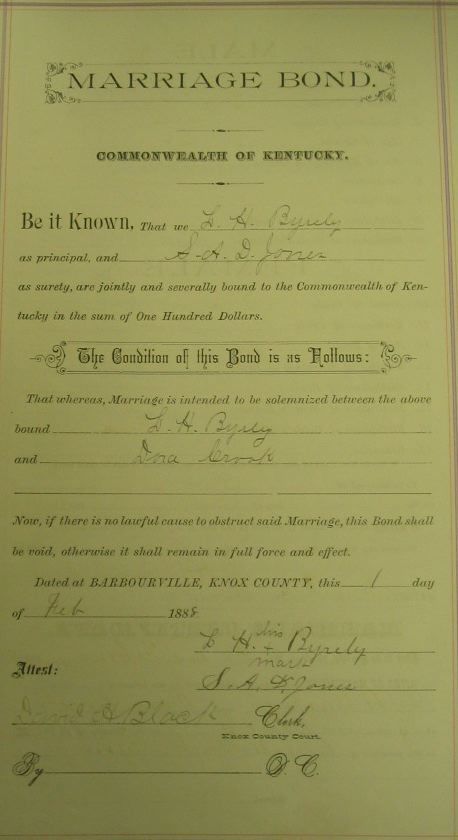 MARRIAGE BOND.
COMMONWEALTH OF KENTUCKY.
Be it Known, That we L. H. Byrely
as principal, and S. A. D. Jones
as surety, are jointly and severally bound to the Commonwealth of Ken-
tucky in the sum of One Hundred Dollars.
The Condition of this Bond is as Follows:
That whereas, Marriage is intended to be solemnized between the above
bound L. H. Byrely
and Dora Crook
Now, if there is no lawful cause to obstruct said Marriage, this Bond shall
be void, otherwise it shall remain in full force and effect.
Dated at BARBOURVILLE, KNOX COUNTY, this 1 day
of Feb 1888
his
L. H. + Byrely
mark
Attest:
S. A. D. Jones
David H Black Clerk,
Knox County Court.
By D. C.